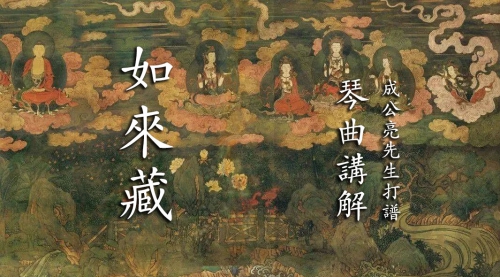 成公亮先生打譜
琴曲講解
如來藏